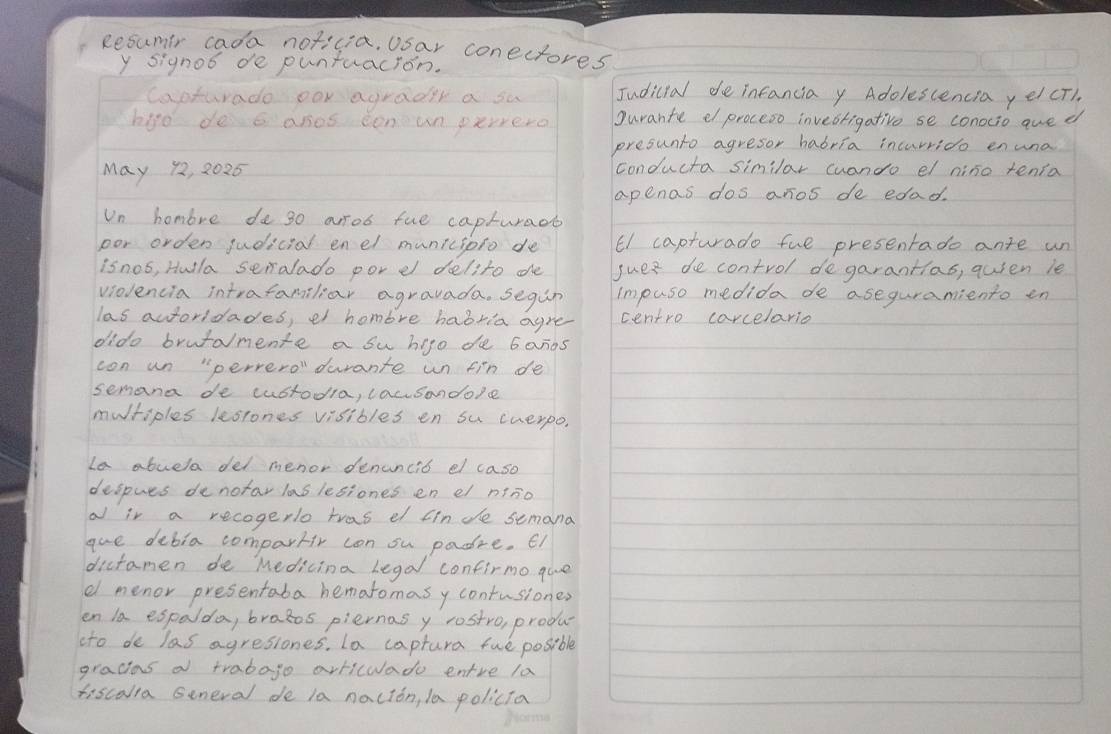 Resumir cada noticia. Usar conectores
y signos de puntuación.
Capturado por agradir a su
hijo de 6 años con un perrero
May 12, 2025
Un hombre de 30 años fue capturado
por orden judicial en el municipio de
isnos, Huila señalado por el delito de
violencia intrafamiliar agravada. según
las autoridades, el hombre habria agre
dido brutalmente a su hijo de 6 años
con un "perrero" durante un fin de
semana de custodia, causandole
multiples lesiones visibles en su cuerpo.
La abuela del menor denunció el caso
despues de notar las lesiones en el niño
al ir a recogerlo tras el fin de semana
que debia compartir con su padre. El
dictamen de Medicina Legal confirmo que
el menor presentaba hematomas y contusiones
en la espalda, brazos piernas y rostro, produ
cto de las agresiones. La captura fue posible
gracias al trabajo articulado entre la
fiscalia General de la nación, la policia
Judicial de infancia y Adolescencia y el CTI.
Durante el proceso investigativo se conocio que el
presunto agresor habría incurrido en una
conducta similar cuando el niño tenía
apenas dos años de edad.
El capturado fue presentado ante un
juez de control de garantías, quien le
impuso medida de aseguramiento en
centro carcelario
norma